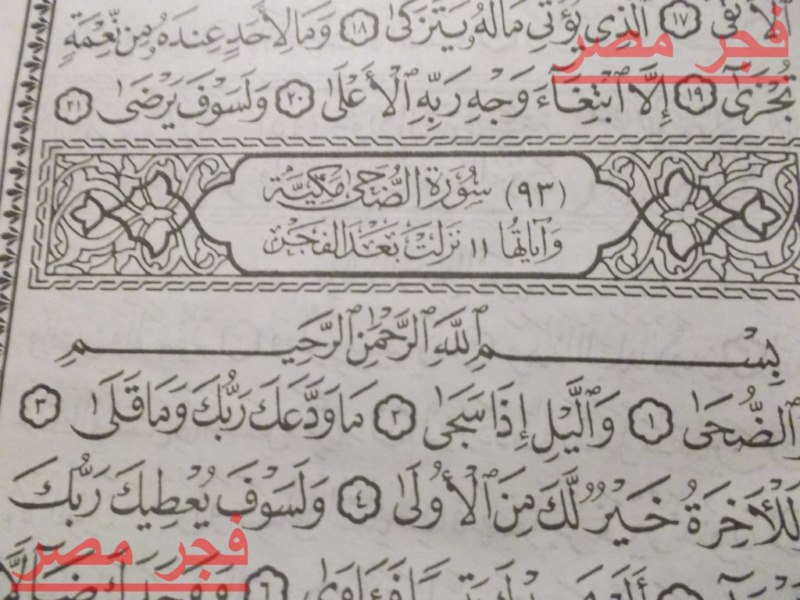 الأتقى ١٧ الذي يؤتي ماله يتزكى ١٨ وما لأحد عنده من نعمة
فجر مصر
تجزى ١٩ إلا ٱبتغاء وجه ربه ٱلأعلى ٢٠ ولسوف يرضى ٢١
(٩٣) سُورَة الضُّحَى مَكيَّة
وَآيَاتُهَا ١١ نَزَلَت بَعْدَ الفَجْر
بِسْمِ اللَّهِ الرَّحْمَٰنِ الرَّحِيمِ
ٱلضُّحَىٰ ١ وَٱلَّيْلِ إِذَا سَجَىٰ ٢ مَا وَدَّعَكَ رَبُّكَ وَمَا قَلَىٰ ٣
لَلْأَخِرَةُ خَيْرٌ لَّكَ مِنَ ٱلْأُولَىٰ ٤ وَلَسَوْفَ يُعْطِيكَ رَبُّكَ
فجر مصر